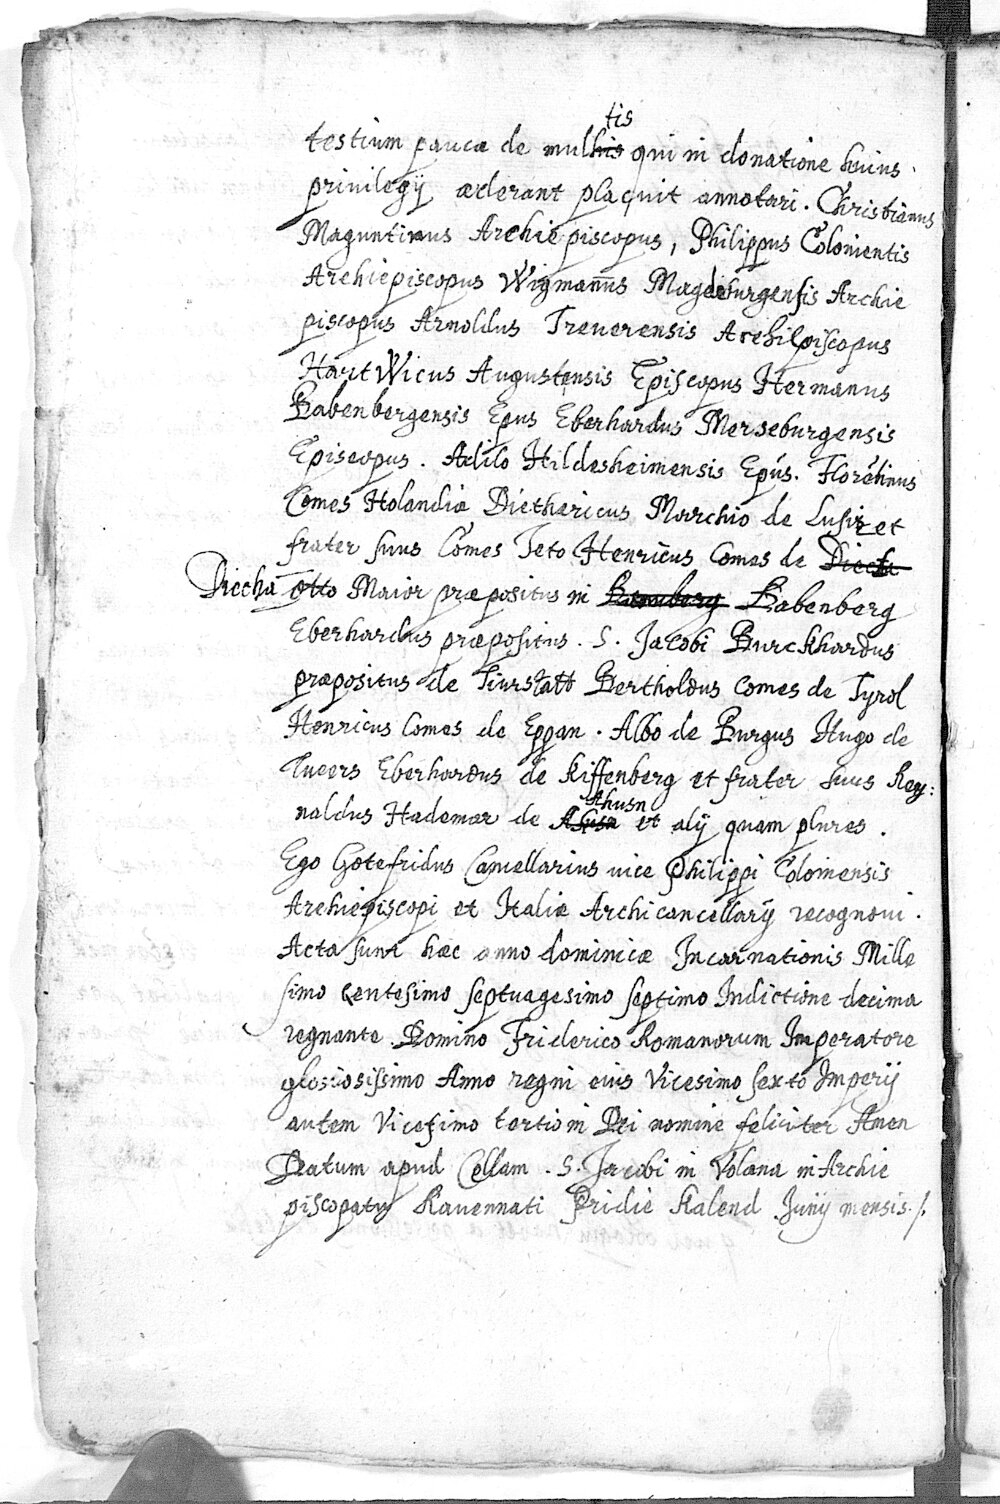 testium paucæ de multis qui in donatione huius
privilegÿ æderant placuit annotari. Christianus
Maguntinus Archiepiscopus, Philippus Colonientis
Archiepiscopus Wigmanns Magdeburgensis Archie
piscopus Arnoldus Treverensis Archiepiscopus
HartWicus Augustensis Episcopus Hermanus
Babenbergensis Epus Eberhardus Merseburgensis
Episcopus. Adilo Hildesheimensis Epus. Florētinus
Comes Holandiæ Diethericus Marchio de Lusiz et
frater suus Comes Teto Henricus Comes de Diecha
Diecha Otto Maior præpositus in Bamberg Babenberg
Eberhardus præpositus. S. Jacobi Burckhardus
præpositus de Tiurstatt Bertholdus Comes de Tyrol
Henricus Comes de Eppan. Albo de Burgus Hugo de
Tueers Eberhardus de Kiffenberg et frater suus Rey:
naldus Hademar de Ahusn et alÿ quam plures.
Ego Gotefridus Cancellarius vice Philippi Coloniensis
Archiepiscopi et Italiæ Archicancellarÿ recognovi.
Acta sunt hæc anno dominicæ Incarnationis Mille
simo Centesimo septuagesimo septimo Indictione decima
regnante Domino Friderico Romanorum Imperatore
gloriosissimo Anno regni eius Vicesimo sexto Imperÿ
autem Vicesimo tertio in Dei nomine feliciter Amen
Datum apud Cellam. S. Jacobi in Volana in Archie
piscopatu Ravennati Pridie Kalend Junÿ mensis./.